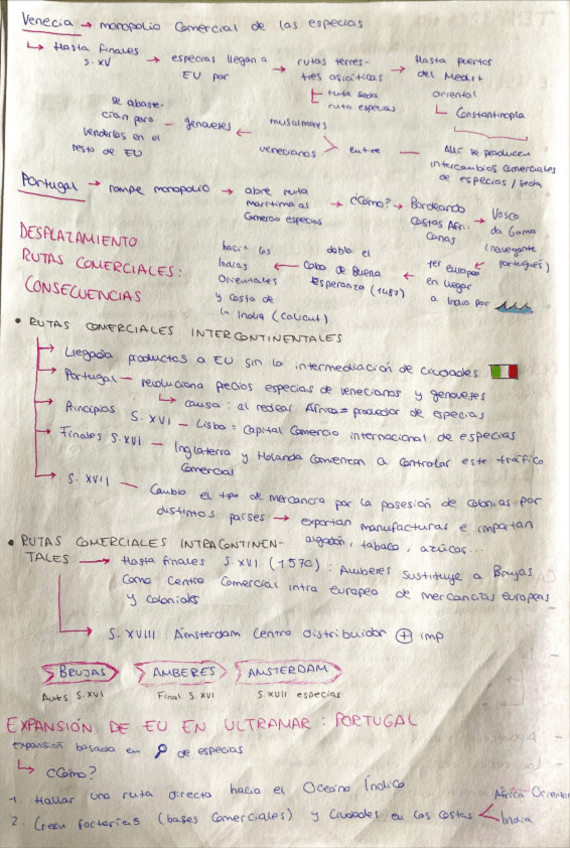 Venecia → monopolio Comercial de las especias
↳ Hasta finales S. XV → especias llegan a EU por → rutas terrestres asiáticas → Hasta puertos del Medit. oriental
ruta seda
ruta especias
Constantinopla
Allí se producen intercambios comerciales de especias / seda
entre
musulmanes
venecianos
genoveses
se abastecían para venderlas en el resto de EU
Portugal → rompe monopolio → abre ruta marítima al comercio especias → ¿Cómo? → Bordeando Costas Africanas → Vasco da Gama (navegante portugués)
1er europeo en llegar a India por
dobla el Cabo de Buena Esperanza (1487)
hacia las Indias Orientales y costa de la India (Calicut)
DESPLAZAMIENTO
RUTAS COMERCIALES:
CONSECUENCIAS
• RUTAS COMERCIALES INTERCONTINENTALES
Llegada productos a EU sin la intermediación de ciudades
Portugal — revoluciona precios especias de venecianos y genoveses
↳ causa: al rodear África = proveedor de especias
Principios S. XVI — Lisboa = Capital Comercio internacional de especias
Finales S. XVI — Inglaterra y Holanda comienzan a controlar este tráfico
comercial
S. XVII — Cambio el tipo de mercancía por la posesión de colonias por
distintos países → exportan manufacturas e importan
algodón, tabaco, azúcar...
• RUTAS COMERCIALES INTRACONTINEN-
TALES → Hasta finales S. XVI (1570): Amberes sustituye a Brujas
como centro comercial intra europeo de mercancías europeas
y coloniales
S. XVIII: Ámsterdam Centro distribuidor + imp
BRUJAS AMBERES AMSTERDAM
Antes S. XVI Final S. XVI S. XVII especias
EXPANSIÓN DE EU EN ULTRAMAR: PORTUGAL
expansión basada en de especias
↳ ¿Cómo?
1. Hallar una ruta directa hacia el Océano Índico
2. Crear factorías (bases comerciales) y ciudades en las costas < África Oriental
India